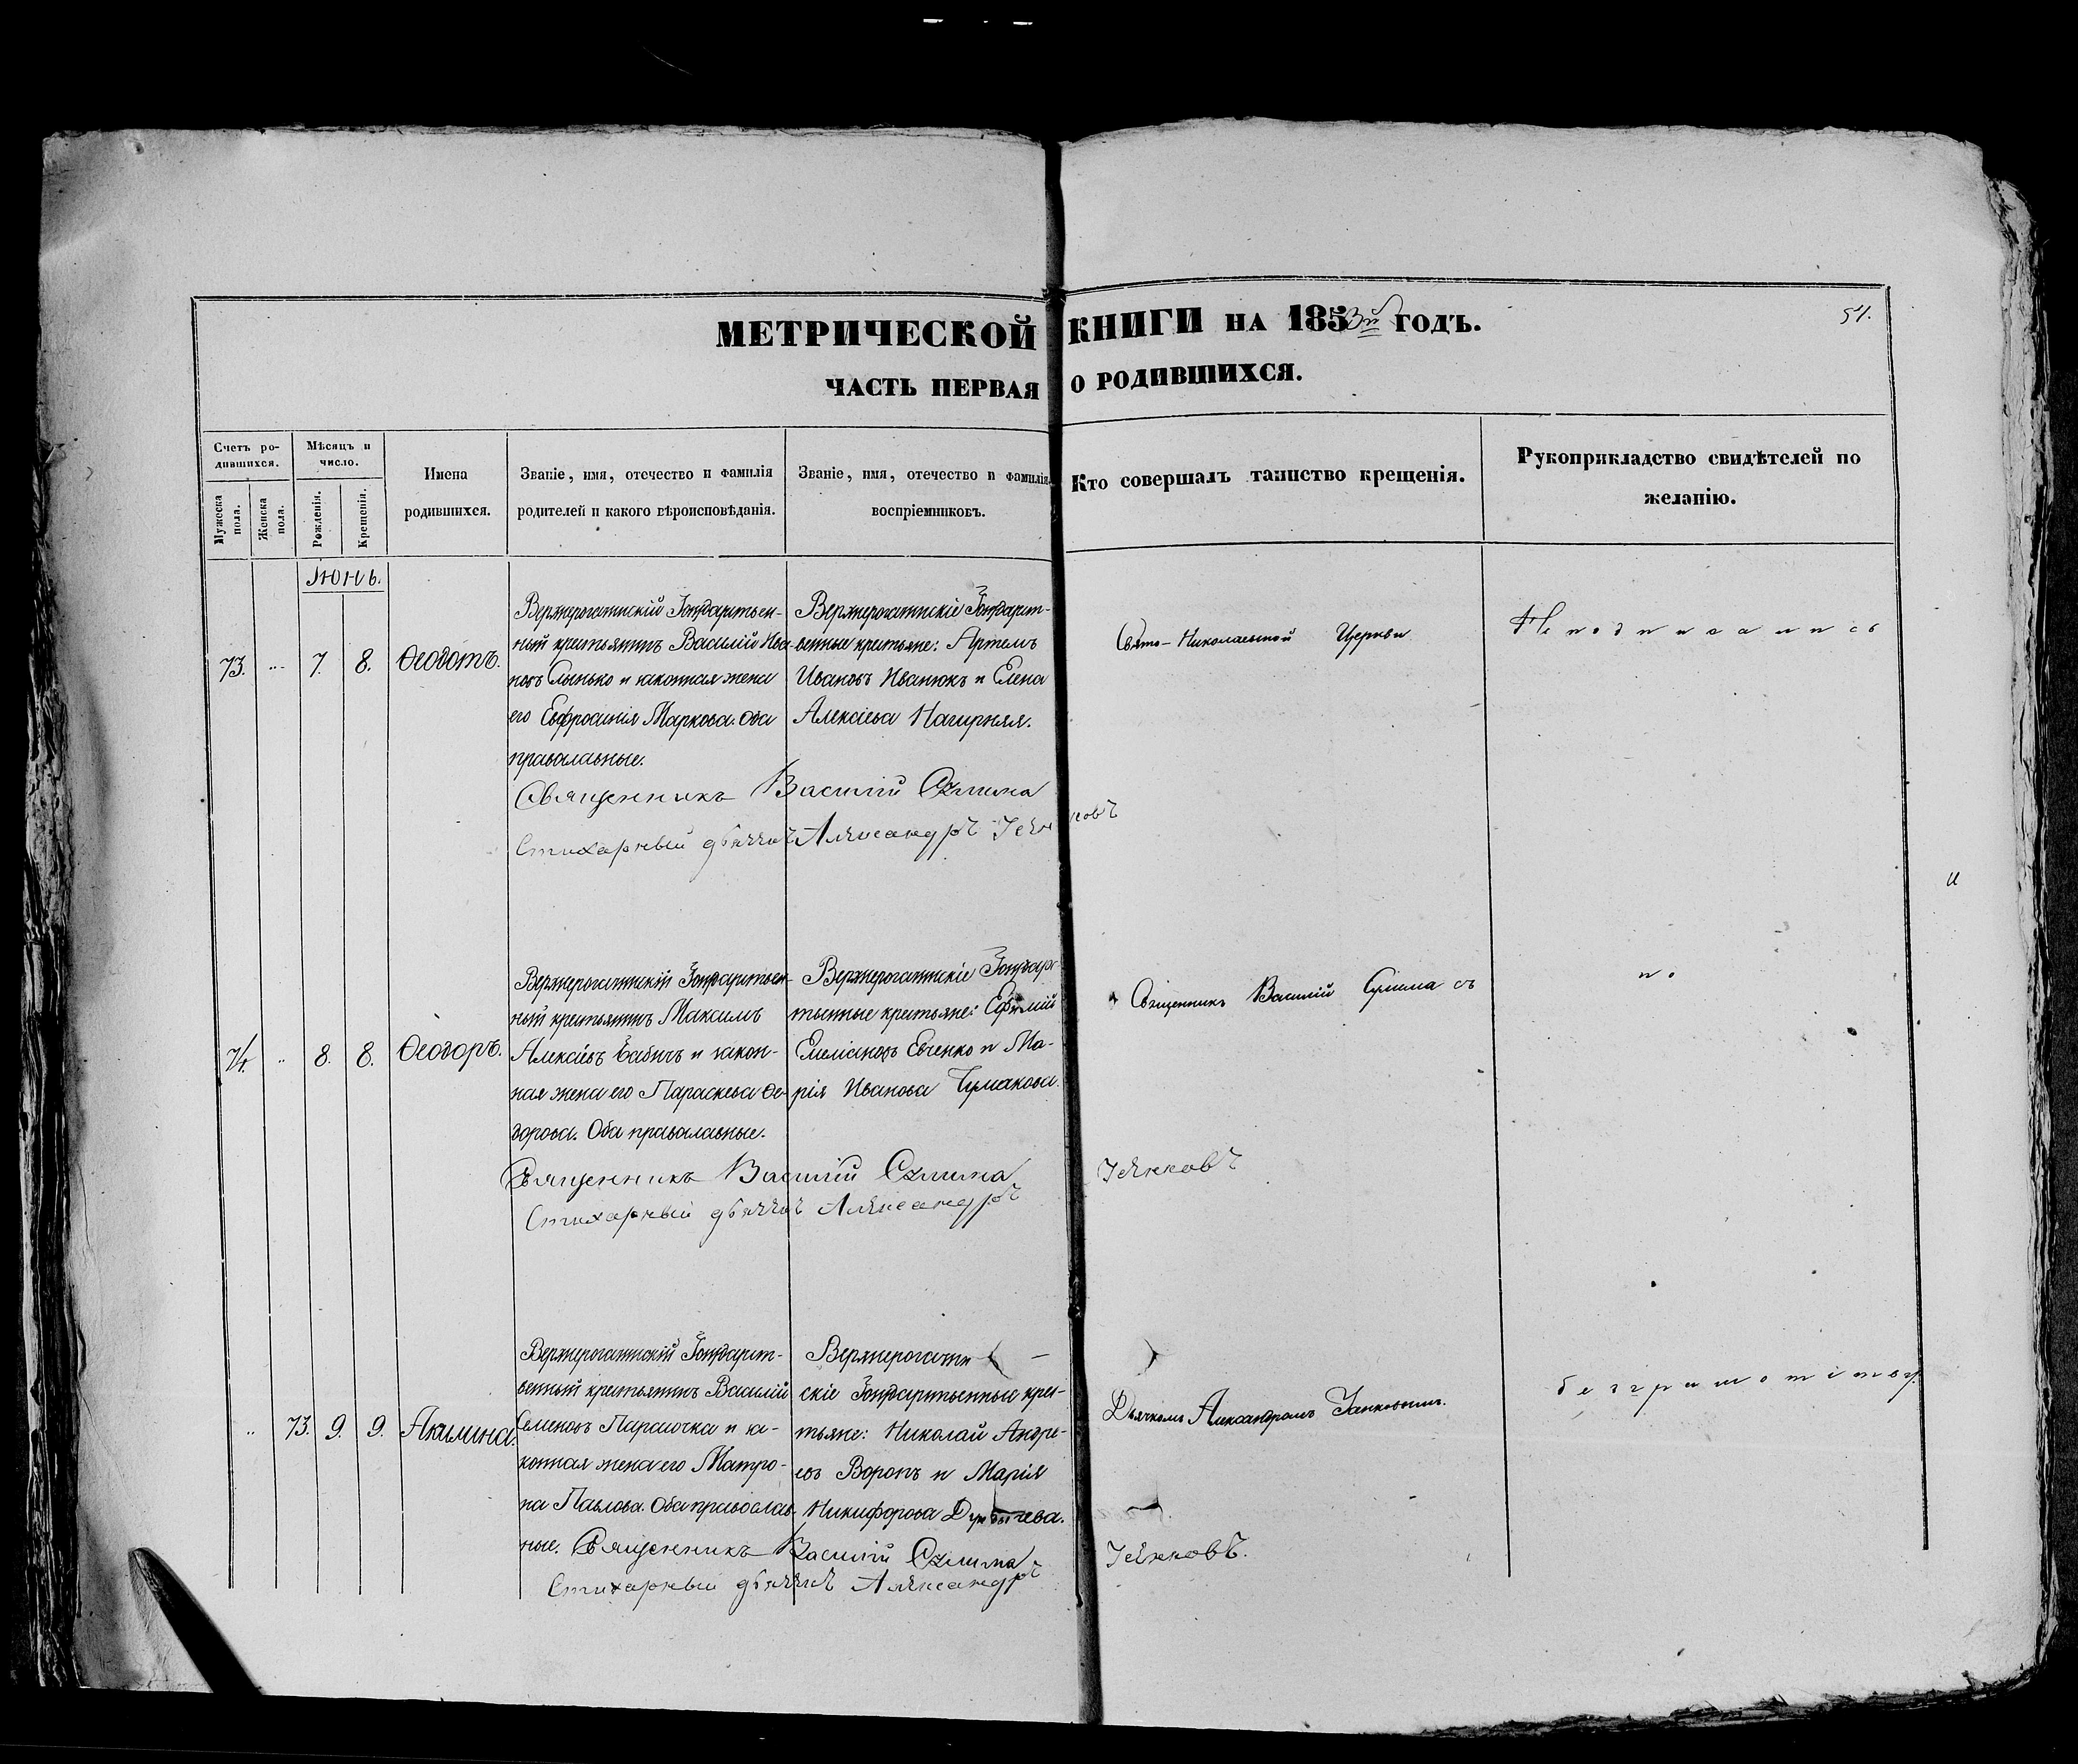 МЕТРИЧЕСКОЙ КНИГИ НА 1853й ГОДЪ.
51.
ЧАСТЬ ПЕРВАЯ О РОДИВШИХСЯ.
Счетъ ро-
дившихся.
Мужеска пола.
Женска пола.
Мѣсяцъ и
число.
Рожденія.
Крещенія.
Имена
родившихся.
Званіе, имя, отечество и фамилія
родителей и какого вѣроисповѣданія.
Званіе, имя, отечество и фамилія
воспріемниковъ.
Кто совершалъ таинство крещенія.
Рукоприкладство свидѣтелей по
желанію.
Июнь.
73. ... 7. 8. Ѳеодотъ.
Верхнерогачинскій Государствен-
ный крестьянинъ Василій Ива-
новъ и законная жена
его Евфросинія Маркова. Оба
православные.
Верхнерогачинскіе Государст-
венные крестьяне: Артемъ
Ивановъ Иванюкъ и Елена
Алексіева Нагирняя.
Свято-Николаевской Церкви
Неподписались
Священникъ Василій Сулима
Стихарный дьячекъ Александръ
74. .. 8. 8. Ѳеодоръ.
Верхнерогачинскій Государствен-
ный крестьянинъ Максимъ
Алексіевъ Бабичъ и закон-
ная жена его Параскева Ѳе-
дорова. Оба православные.
Верхнерогачинскіе Государс-
твенные крестьяне: Ефимій
Емеліановъ Евченко и Ма-
рія Иванова Чумакова.
Священникъ Василій Сулима съ
по
Священникъ Василій Сулима
Стихарный дьячекъ Александръ Янковъ
.. 73. 9. 9. Акилина.
Верхнерогачинскій Государст-
венный крестьянинъ Василій
Семеновъ Параочка и за-
конная жена его Матро-
на Павлова. Оба православ-
ные.
Верхнерогачин-
скіе Государственные крес-
тьяне: Николай Андре-
евъ Воронъ и Марія
Никифорова
Дьячкомъ Александромъ
безграмотству.
Священникъ Василій Сулима
Стихарный дьячекъ Александръ Янковъ.